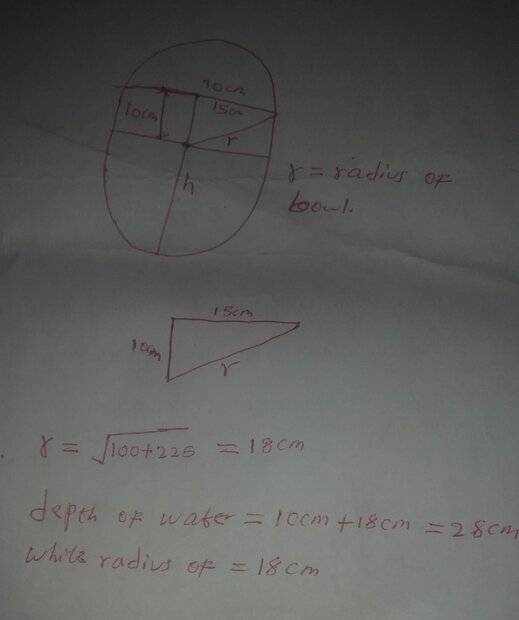 30cm
10cm
15cm
r
h
r = radius of
bowl.
15cm
10cm
r
r = √100+225 = 18cm
depth of water = 10cm + 18cm = 28cm
while radius of = 18cm